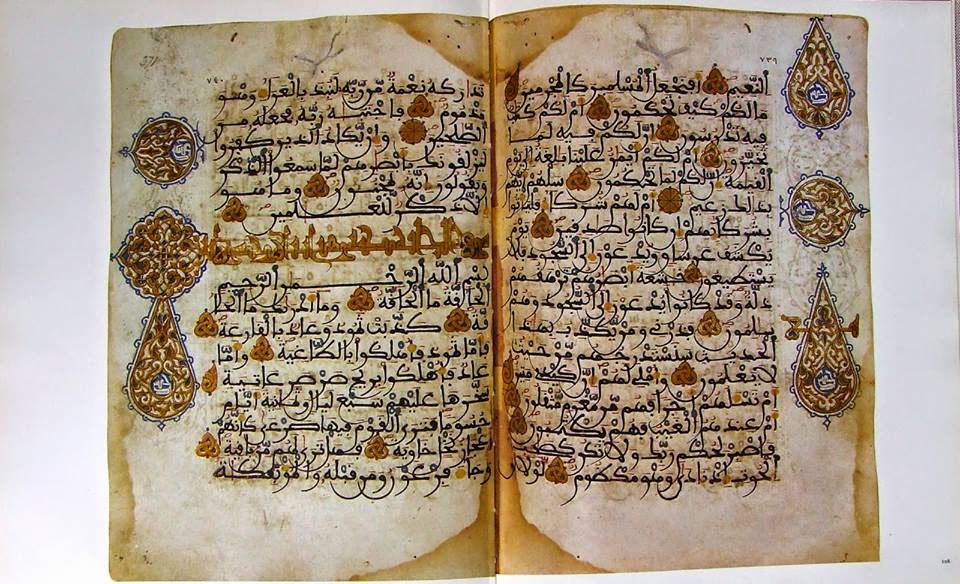 ٧٣٩
النعيم أفنجعل المسلمين كالمجرمين
ما لكم كيف تحكمون أم لكم كتب
فيه تدرسون إن لكم فيه لما
تخيرون أم لكم أيمن علينا بلغة إلى يوم
القيمة إن لكم لما تحكمون سلهم أيهم
بذلك زعيم أم لهم شركاء فليأتوا
بشركائهم إن كانوا صدقين يوم
يكشف عن ساق ويدعون إلى السجود فلا
يستطيعون خشعة أبصرهم ترهقهم
ذلة وقد كانوا يدعون إلى السجود وهم
سلمون فذرني ومن يكذب بهذا
الحديث سنستدرجهم من حيث
لا يعلمون وأملي لهم إن كيدي متين
أم تسئلهم أجرا فهم من مغرم مثقلون
أم عندهم الغيب فهم يكتبون
فاصبر لحكم ربك ولا تكن كصحب
الحوت إذ نادى وهو مكظوم لولا أن
٧٤٠
تدركه نعمة من ربه لنبذ بالعراء وهو
مذموم فاجتبه ربه فجعله من
الصلحين وإن يكاد الذين كفروا
ليزلقونك بأبصرهم لما سمعوا الذكر
ويقولون إنه لمجنون وما هو
إلا ذكر للعلمين
بسم الله الرحمن الرحيم
الحاقة ما الحاقة وما أدريك ما الحا
قة كذبت ثمود وعاد بالقارعة
فأما ثمود فأهلكوا بالطاغية وأما
عاد فأهلكوا بريح صرصر عاتية
سخرها عليهم سبع ليال وثمنية أيام
حسوما فترى القوم فيها صرعى كأنهم
أعجاز نخل خاوية فهل ترى لهم من باقية
وجاء فرعون ومن قبله والمؤتفكة